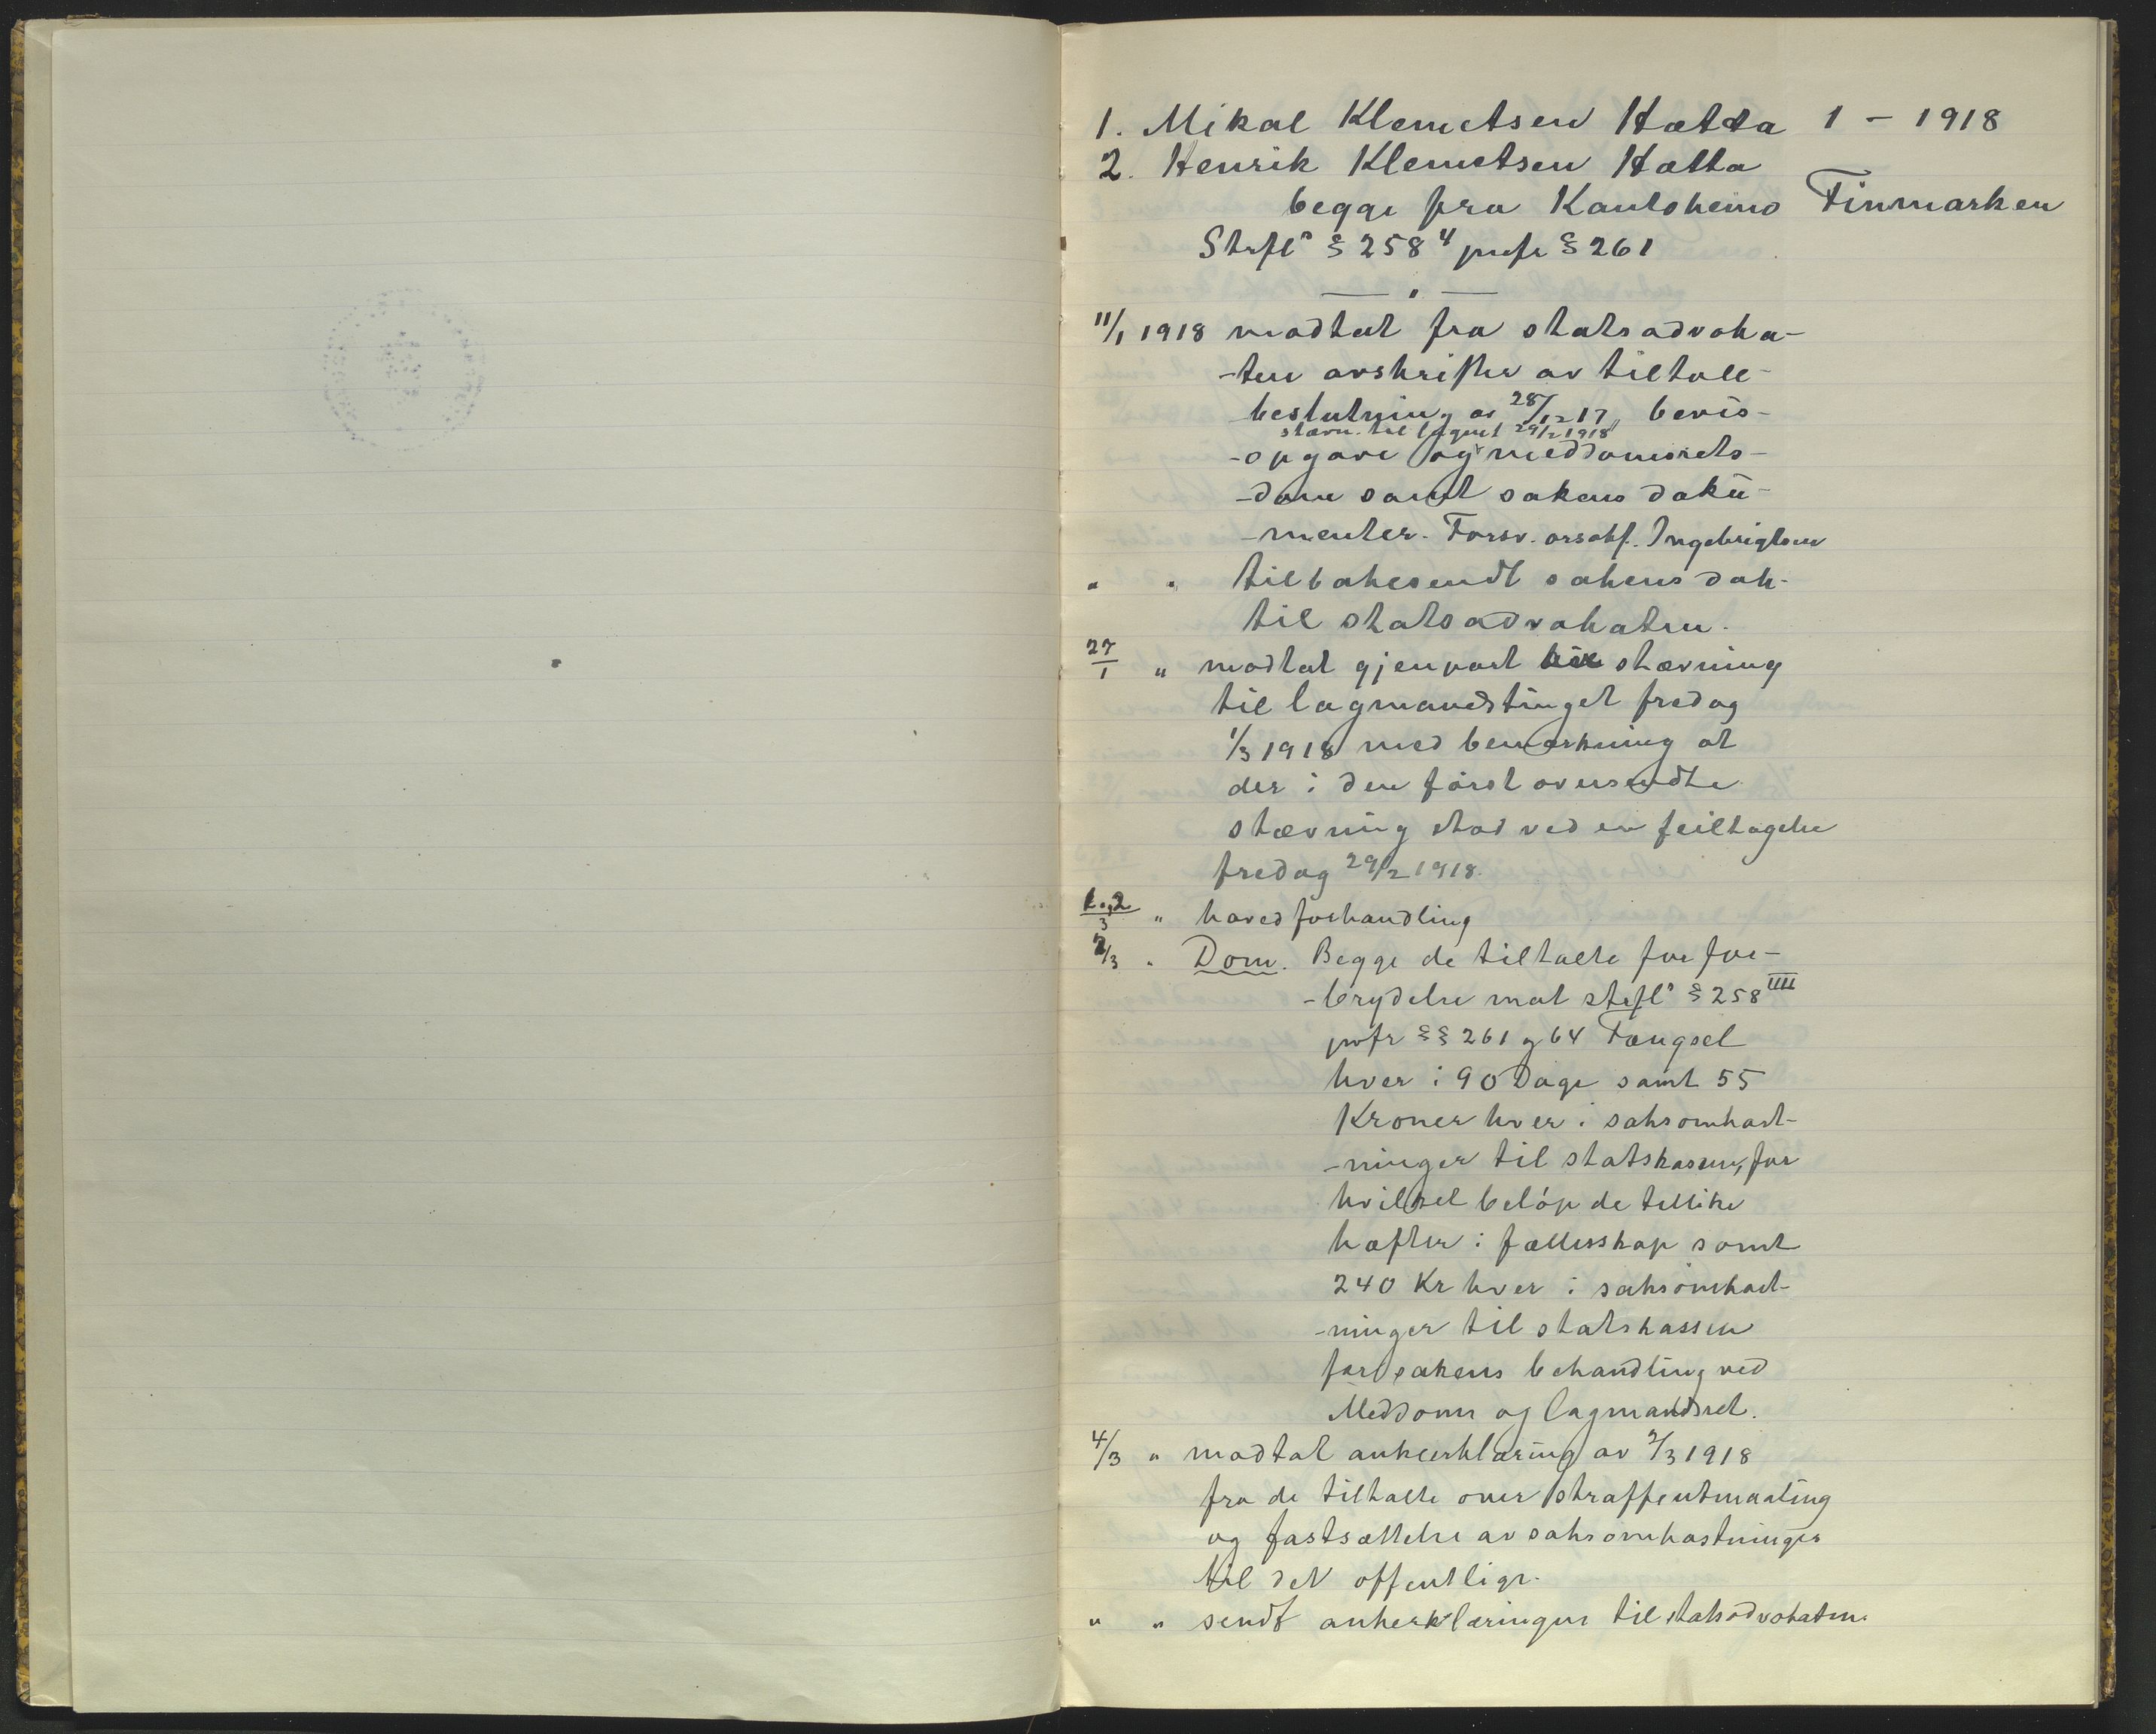 1. Mikal Klemetsen Hætta 1 - 1918
2. Henrik Klemetsen Hætta
begge fra Kautokeino Finmarken
Strfl⁸ § 258⁴ jvnfr § 261
11/1 1918 modtat fra statsadvoka-
-ten avskrifter av tiltale-
beslutning av 28/12 17, bevis-
stævn. til lagret 29/2 1918
-opgave og meddomsrets-
-dom samt sakens doku-
-menter. Forsv. orsakf. Ingebrigtsen
" " tilbakesendt sakens dok.
til statsadvokaten.
27/1 " modtat gjenpart stævning
til lagmandstinget fredag
1/3 1918 med bemærkning at
der i den først oversendte
stævning stod ved en feiltagelse
fredag 29/2 1918.
1.,2/3 " hovedforhandling
2/3 " Dom. Begge de tiltalte for for-
-brydelse mot strfl⁸ § 258 IIII
jvnfr §§ 261 og 64 Fængsel
hver i 90 Dage samt 55
Kroner hver i saksomkost-
-ninger til statskassen, for
hvilket beløp de tillike
hæfter i fællesskap samt
240 Kr hver i saksomkost-
-ninger til statskassen
for sakens behandling ved
Meddoms og lagmandsret.
4/3 " modtat ankeerklæring av 2/3 1918
fra de tiltalte over straffeutmaaling
og fastsættelse av saksomkostninger
til det offentlige.
" " sendt ankerklæringen til statsadvokaten.